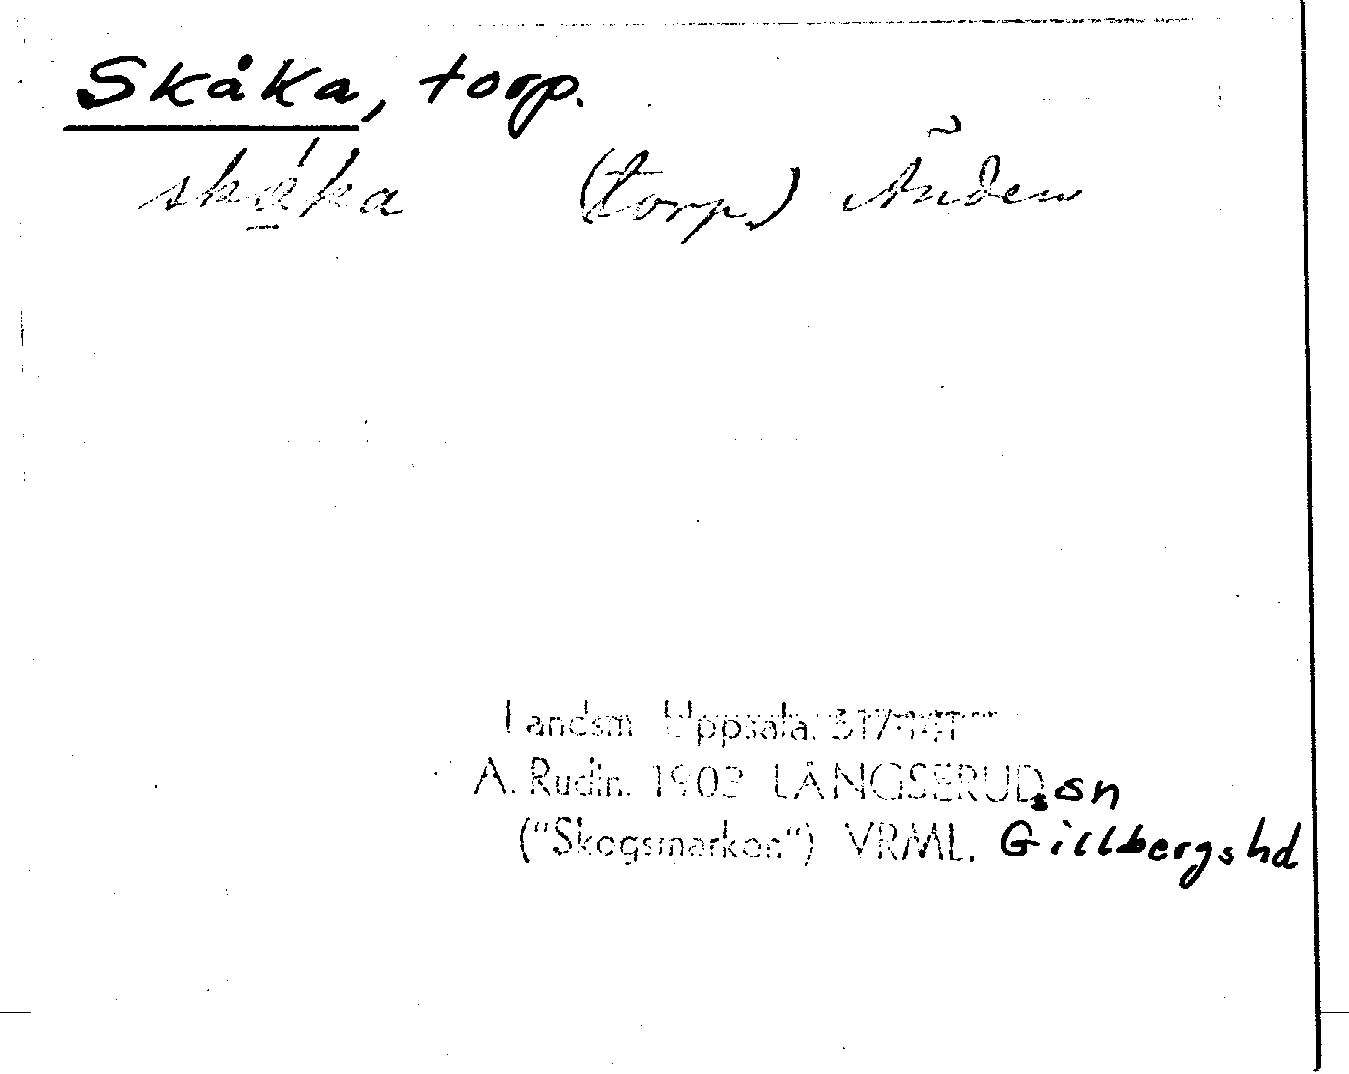 Skåka, torp.
skáka (torp.)
Landsm. Uppsala.
A. Rudin. 1902 LÅNGSERUDs sn
("Skogsmarken") VRML. Gillbergs hd